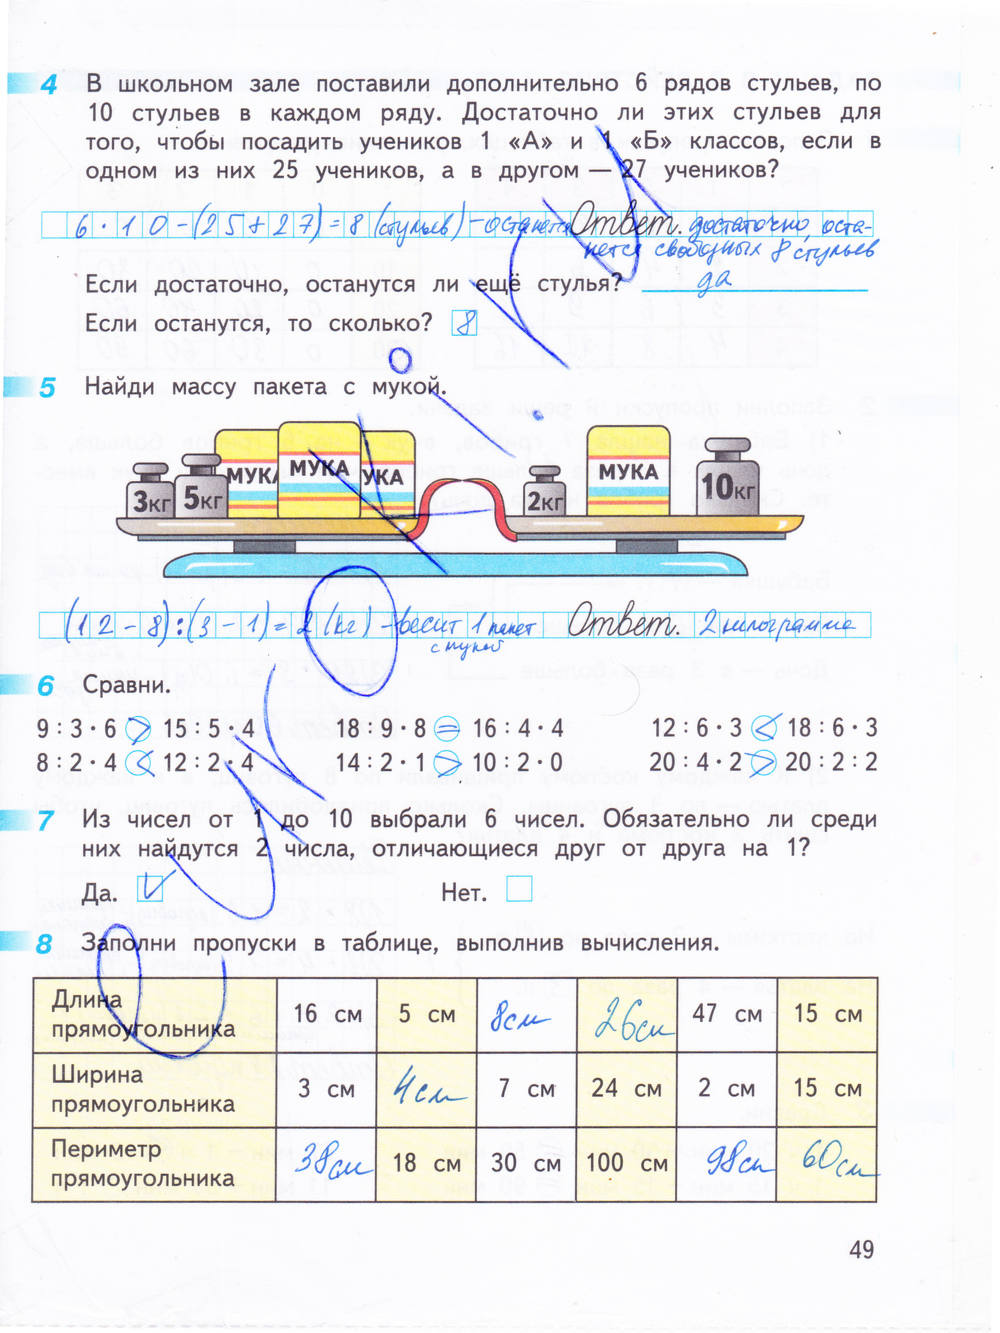 4 В школьном зале поставили дополнительно 6 рядов стульев, по
10 стульев в каждом ряду. Достаточно ли этих стульев для
того, чтобы посадить учеников 1 «А» и 1 «Б» классов, если в
одном из них 25 учеников, а в другом — 27 учеников?
6 · 10 - (25 + 27) = 8 (стульев) - останется Ответ. достаточно, оста-
нется свободных 8 стульев
Если достаточно, останутся ли ещё стулья? да
Если останутся, то сколько? 8
5 Найди массу пакета с мукой.
3кг 5кг МУКА МУКА УКА 2кг МУКА 10кг
(12 - 8) : (3 - 1) = 2 (кг) - весит 1 пакет Ответ. 2 килограмма
с мукой
6 Сравни.
9 : 3 · 6 > 15 : 5 · 4 18 : 9 · 8 = 16 : 4 · 4 12 : 6 · 3 < 18 : 6 · 3
8 : 2 · 4 < 12 : 2 · 4 14 : 2 · 1 > 10 : 2 · 0 20 : 4 · 2 > 20 : 2 : 2
7 Из чисел от 1 до 10 выбрали 6 чисел. Обязательно ли среди
них найдутся 2 числа, отличающиеся друг от друга на 1?
Да. V Нет.
8 Заполни пропуски в таблице, выполнив вычисления.
Длина
прямоугольника 16 см 5 см 8см 26см 47 см 15 см
Ширина
прямоугольника 3 см 4см 7 см 24 см 2 см 15 см
Периметр
прямоугольника 38см 18 см 30 см 100 см 98см 60см
49